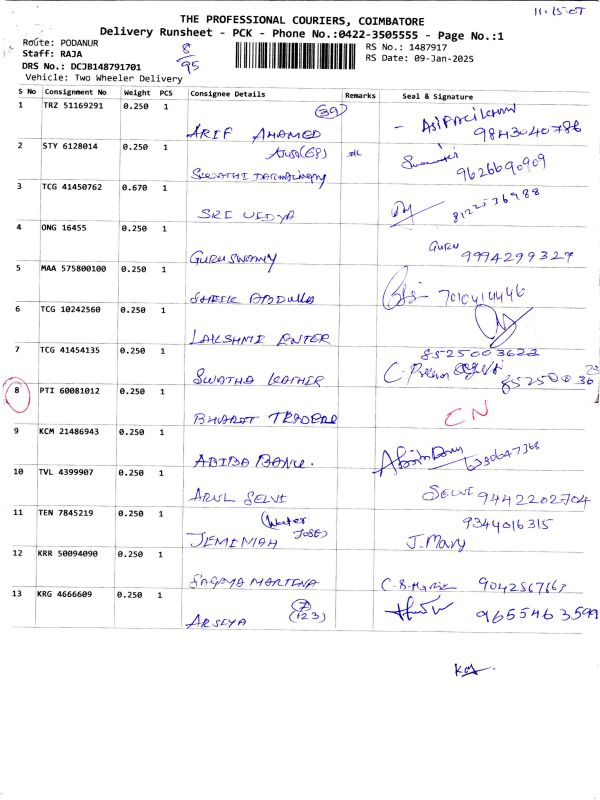 11.15 OT
THE PROFESSIONAL COURIERS, COIMBATORE
Delivery Runsheet - PCK - Phone No.:0422-3505555 - Page No.:1
Route: PODANUR
Staff: RAJA
DRS No.: DCJB148791701
Vehicle: Two Wheeler Delivery
8/95
RS No.: 1487917
RS Date: 09-Jan-2025
S No Consignment No Weight PCS Consignee Details Remarks Seal & Signature
1 TRZ 51169291 0.250 1 (39)
ARIF AHAMED 9843040786
2 STY 6128014 0.250 1 (68)
SWATHI 9626690909
3 TCG 41450762 0.670 1
SRI VIDYA 8122536988
4 ONG 16455 0.250 1 GURU
GURUSWAMY 9994299327
5 MAA 575800100 0.250 1
SHEIK ABDULLA 7010414446
6 TCG 10242560 0.250 1
LAKSHMI ENTER
7 TCG 41454135 0.250 1 8525003622
SWATHA KATHIR
8 PTI 60081012 0.250 1
BHARAT TRADERS CN
9 KCM 21486943 0.250 1
ABIBA BANU.
10 TVL 4399907 0.250 1
ARUL SELVI SELVI 9442202704
11 TEN 7845219 0.250 1 (Water 9344016315
JEMINIAH JOSE) J. Mary
12 KRR 50094090 0.250 1
SAGAYA MARTENA 9042567663
13 KRG 4666609 0.250 1 7
ARSIYA (123) 9655463599